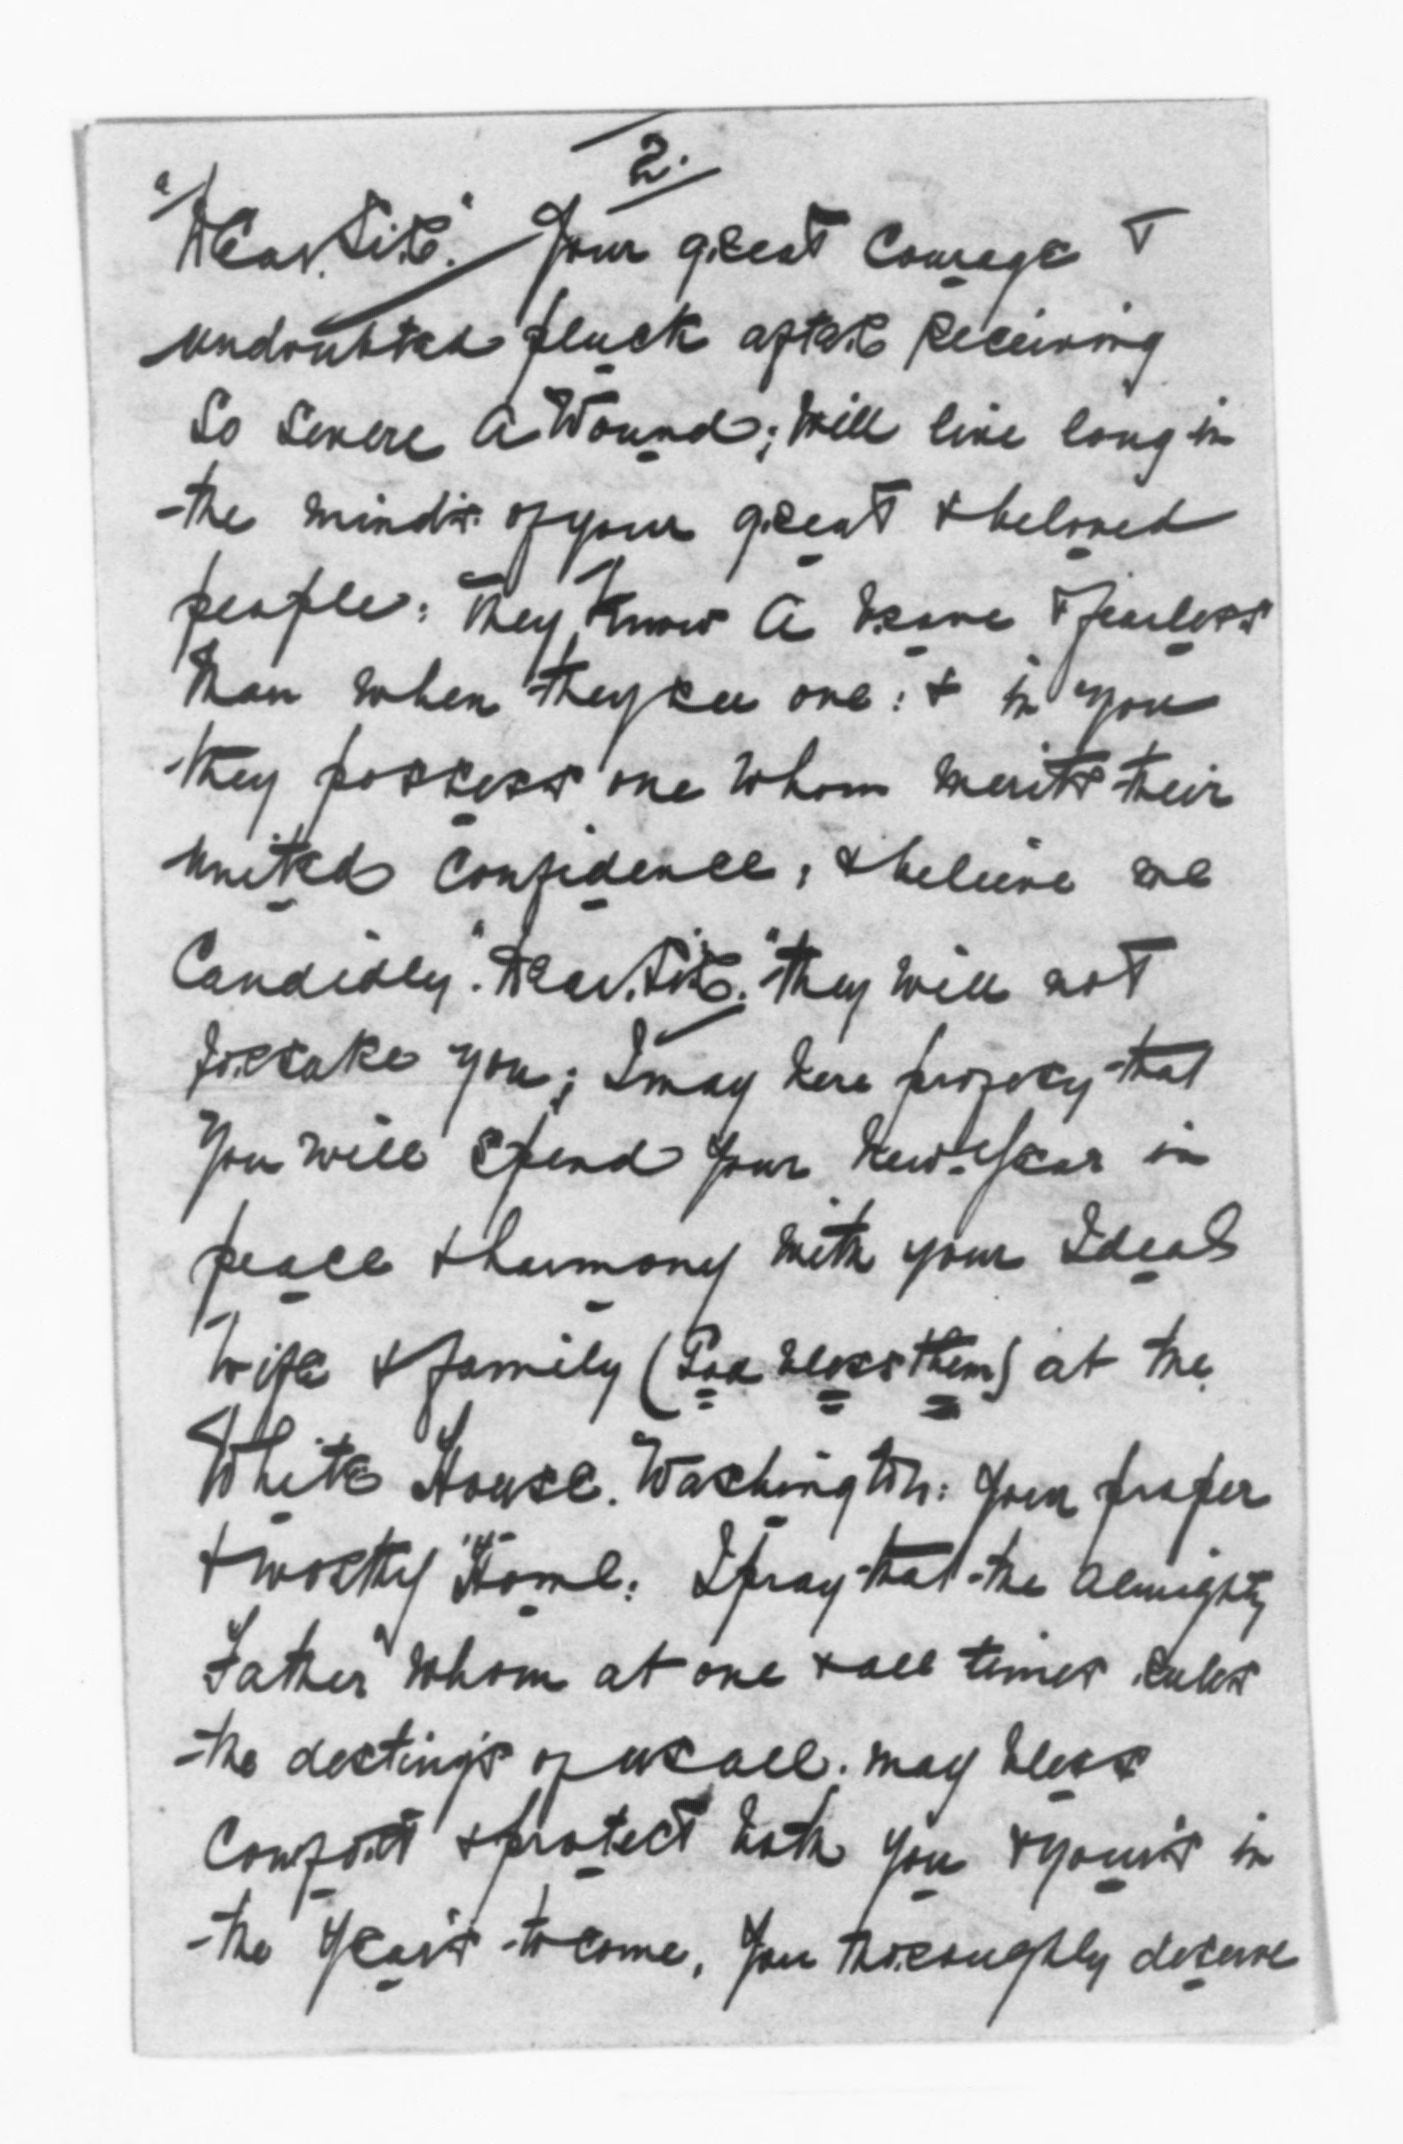 2.
"Dear. Sir." Your great Courage &
undoubted pluck after receiving
So Severe A Wound; Will live long in
the minds of your great & beloved
people: They Know A brave & fearless
Man when they see one: & in you
they possess one Whom merits their
united Confidence, & believe me
Candidly "Dear. Sir." they will not
forsake you; I may here profecy that
You will Spend Your New-Year in
peace & harmony with your Ideal
Wife & family (God bless them) at the
White House. Washington: Your proper
& worthy "Home. I pray that the Almighty
Father" Whom at one & all times rules
the destiny's of us all. may bless
Comfort & protect both you & your's in
the Year's to come, You thoroughly deserve